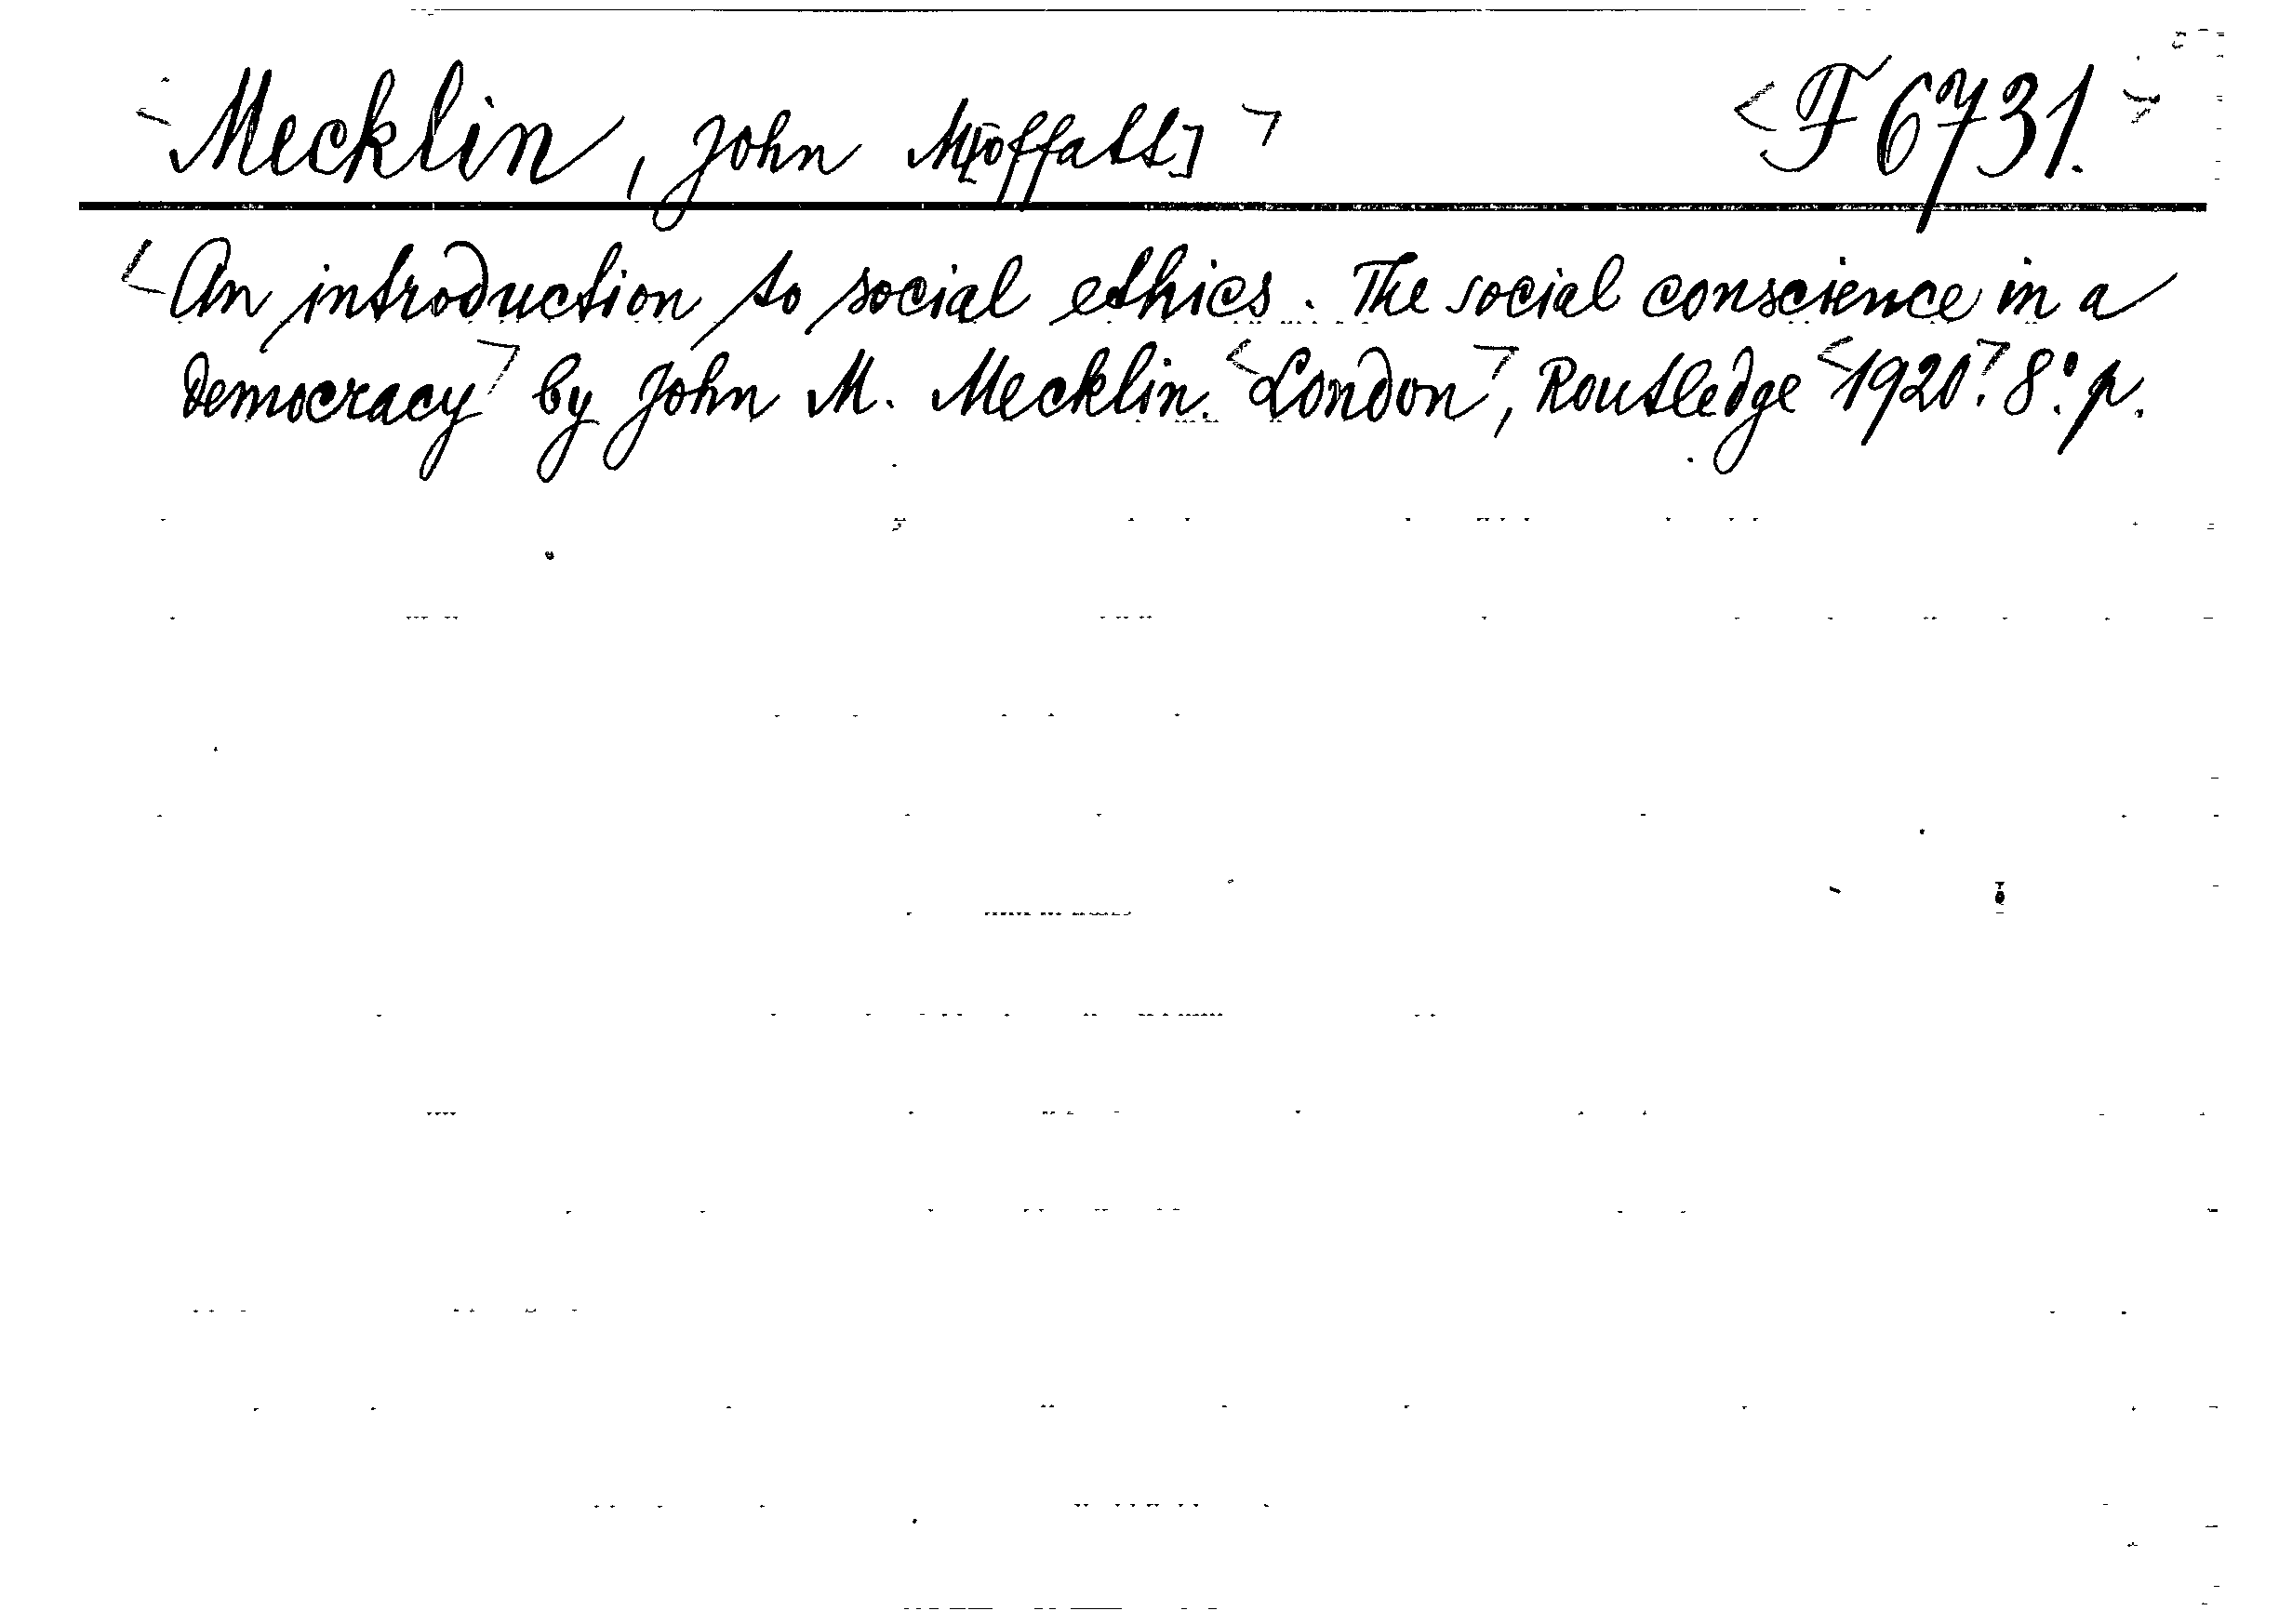 <Mecklin, John M[offatt]> <F 6731.>
<An introduction to social ethics. The social conscience in a
democracy> by John M. Mecklin. <London>, Routledge <1920>. 8.° p.